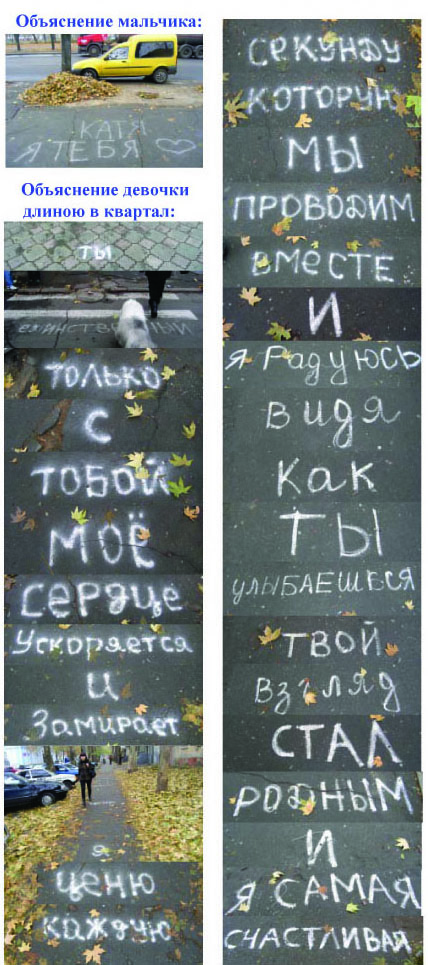 Объяснение мальчика:
КАТЯ
Я ТЕБЯ
Объяснение девочки
длиною в квартал:
ты
единственный
только
с
тобой
моё
сердце
Ускоряется
и
Замирает
я
ценю
каждую
секунду
которую
мы
проводим
вместе
и
я радуюсь
видя
как
ты
улыбаешься
твой
взгляд
стал
родным
и
я самая
счастливая